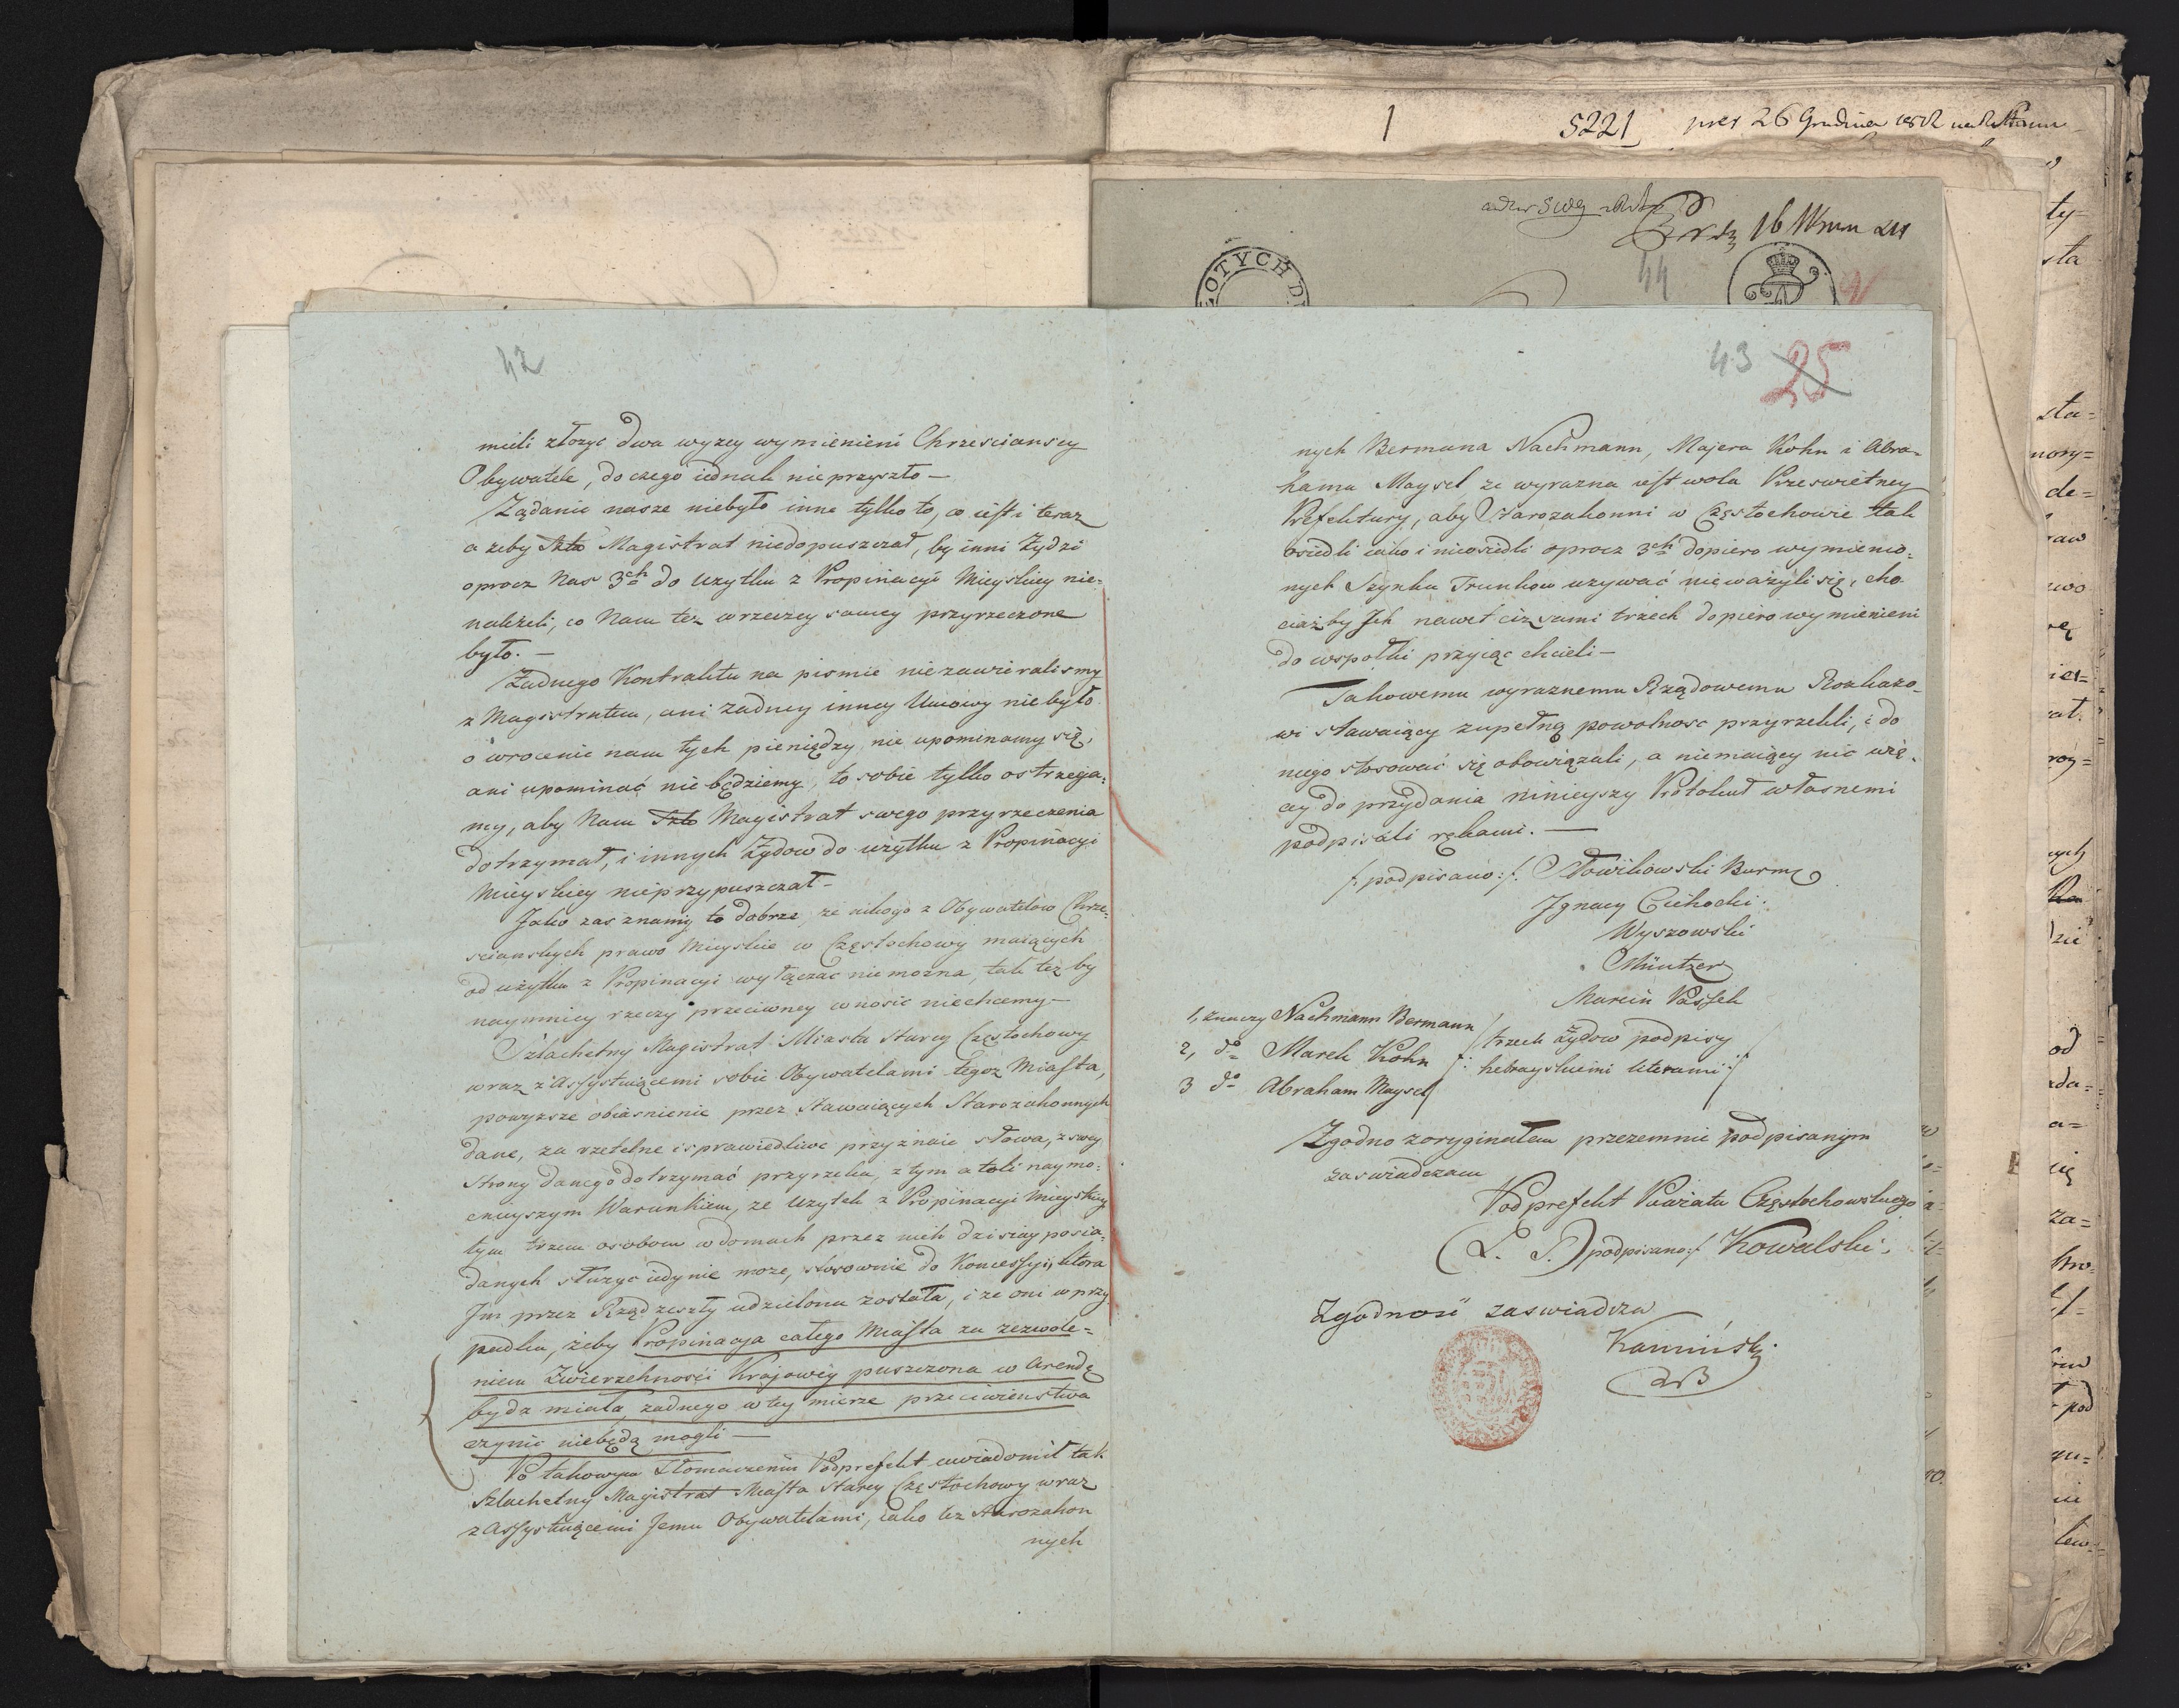 1
5221 pres 26 Grudnia
16
44
OTYCH D
42
mieli złozyc dwa wyzey wymienieni Chrzesciansey
Obywatele, do czego iednak nieprzyszło —
Ządanie nasze niebyło inne tylko to, co iest i teraz
a zeby Szto Magistrat niedopuszczał, by inni Zydzi
oprocz Nas 3ch do Uzytku z Propinacyi Mieyskiey nie=
nalezeli, co Nam tez w rzeczey samey przyrzeczone
było. —
Zadnego Kontraktu na pismie niezawieralismy
z Magistratem, ani zadney inney Umowy niebyło
o wrocenie nam tych pieniędzy nie upominamy się,
ani upominać nie będziemy, to sobie tylko ostrzega=
my, aby Nam Szto Magistrat swego przyrzeczenia
dotrzymał, i innych Zydow do uzytku z Propinacyi
Mieyskiey nieprzypuszczał —
Jako zas znamy to dobrze, ze nikogo z Obywatelow Chrze=
scianskych prawo Mieyskie w Częstochowy maiących
od uzytku z Propinacyi wyłączac niemozna, tak tez by
naymniey rzeczy przeciwney wnosic niechcemy —
Szlachetny Magistrat Miasta Starey Częstochowy
wraz z Assystuiącemi sobie Obywatelami tegoz Miasta,
powyzsze obiasnienie przez Stawaiących Starozakonnych
dane, za rzetelne i sprawiedliwe przyznaie słowa, z swey
Strony danego dotrzymać przyrzeka, z tym atoli naymo=
cnieyszym Warunkiem, ze Uzytek z Propinacyi Mieyskiey
tym trzem osobom w domach przez nich dzisiay posia=
danych słuzyc iedynie moze, stosownie do Koncessyi, ktora
Jm przez Rząd zeszły udzielona została, i ze oni w przy
padku, zeby Propinacya całego Miasta za zezwole=
niem Zwierzchnosci Krajowey puszczona w Arendę
bydz miała, zadnego w tey mierze przeciwienstwa
czynic niebędą mogli —
Po takowym Tłomaczeniu Podprefekt uwiadomił tak
Szlachetny Magistrat Miasta Starey Częstochowy wraz
z Assystuiącemi Jemu Obywatelami, iako tez Starozakon
nych
43 25
nych Bermana Nachmann, Majera Kohn i Abra=
hama Maysel ze wyrazna iest wola Przeswietney
Prefektury, aby Starozakonni w Częstochowie tak
osiedli iako i nieosiedli oprocz 3ch dopiero wymienio=
nych Szynku Trunkow uzywać niewazyli się, cho
ciazby Jch nawet ciz sami trzech dopiero wymienieni
do wspołki przyiąc chcieli —
Takowemu wyraznemu Rządowemu Rozkazo=
wi stawaiący zupełną powolnosc przyrzekli, i do
niego stosować się obowiązali, a niemaiący nic wię=
cey do przydania ninieyszy Protokuł własnemi
podpisali rękami. —
/: podpisano :/. Słowikowski Burm
Jgnacy Cichocki.
Wyszowski
Müntzer
Marcin Passek
1, znaczy Nachmann Bermann
2, do Marek Kohn
3 do Abraham Maysel
/: trzech Zydow podpisy
hebrayskiemi literami :/
Zgodno z oryginałem przezemnie podpisanym
zaswiadczam
Podprefekt Powiatu Częstochowskiego
(L. S.) podpisano :/. Kowalski.
Zgodnosć zaswiadcza
Kaminski